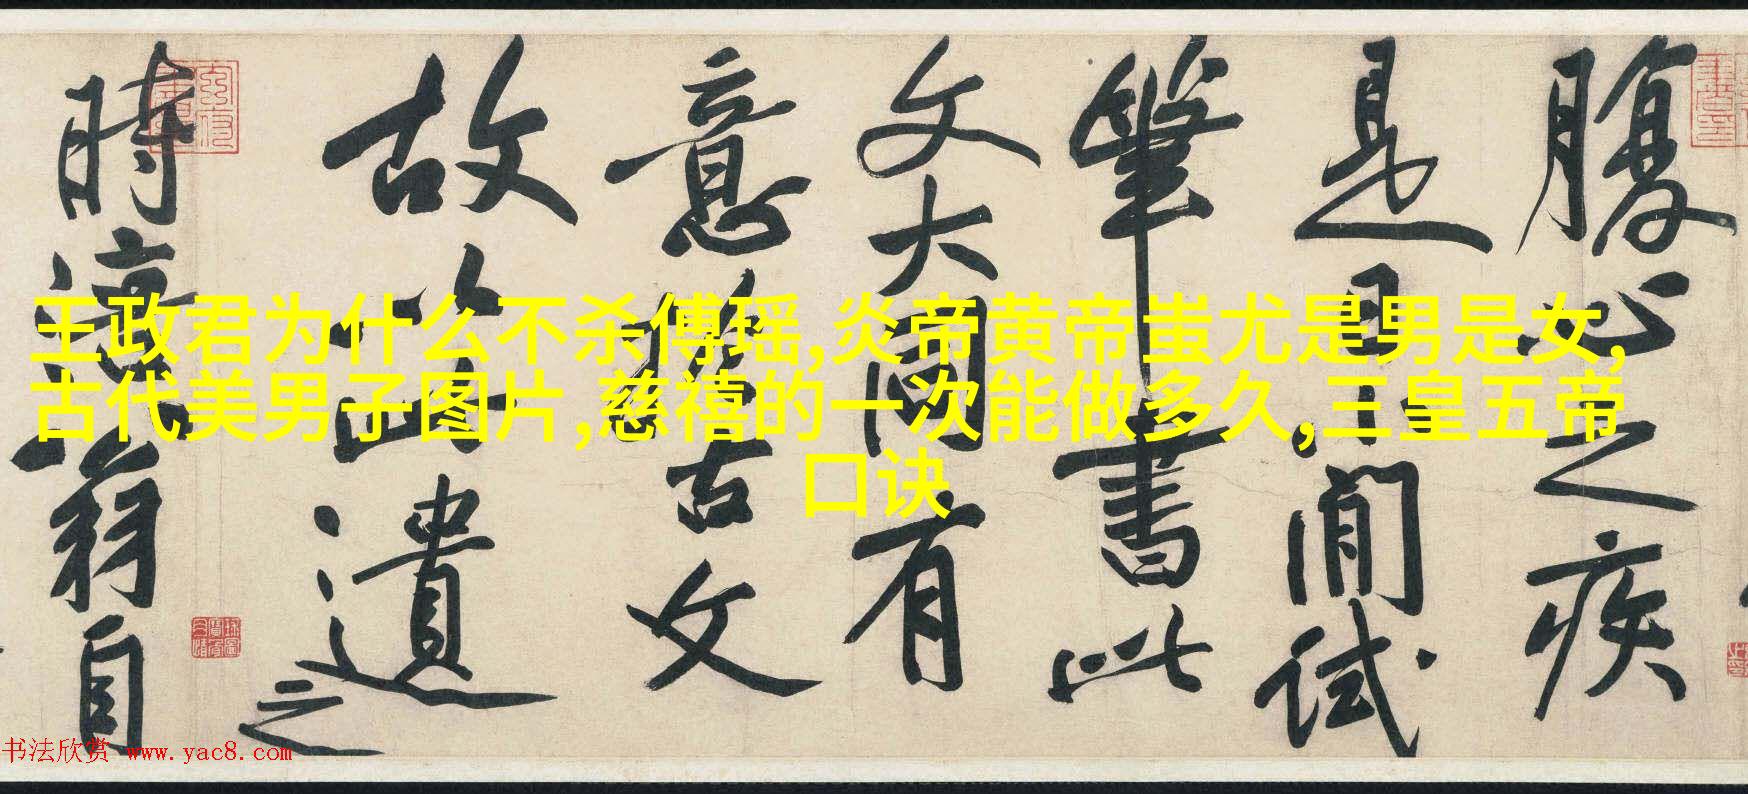 王政君为什么不杀傅瑶,炎帝黄帝蚩尤是男是女,
古代美男子图片,慈禧的一次能做多久,三皇五帝
口诀
腹心之疾
是日閒試
筆書此
文大國有
意於古文
故以此遺之
時涪翁自
书法欣赏 www.yac8.com